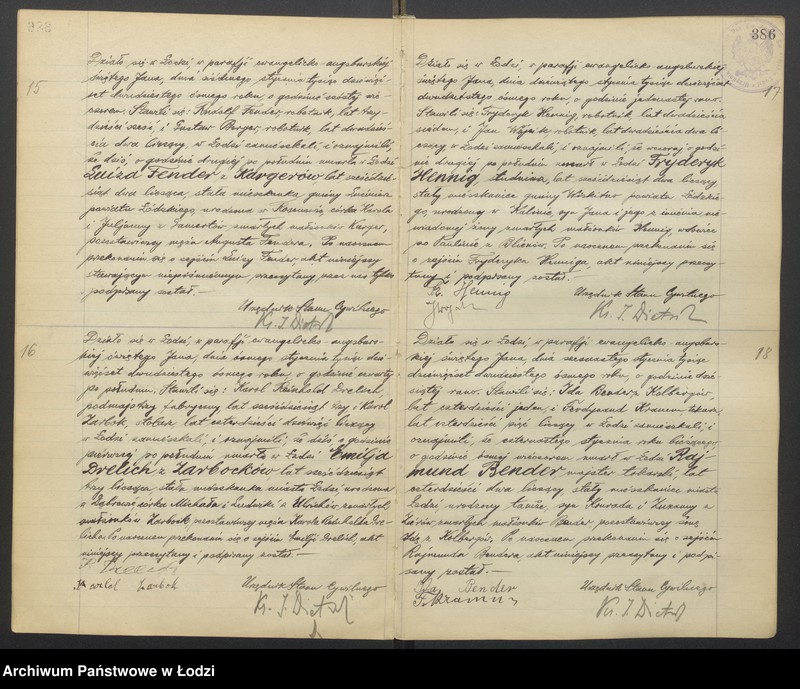 385
15
Działo się w Łodzi w parafji ewangelicko-augsburskiej
świętego Jana, dnia siódmego stycznia tysiąc dziewięć-
set dwudziestego ósmego roku, o godzinie szóstej wie-
czorem. Stawili się: Rudolf Fender, robotnik, lat trzy-
dzieści sześć, i Gustaw Berger, robotnik, lat dwadzieś-
cia dwa liczący, w Łodzi zamieszkali, i oznajmili,
że dziś, o godzinie drugiej po południu zmarła w Łodzi
Luiza Fender z Kargerów, lat sześćdzie-
siąt dwa licząca, stała mieszkanka gminy
powiatu Łódzkiego, urodzona w córka Karola
i Juljanny z zmarłych małżonków Karger,
pozostawiwszy męża Augusta Fendera. Po naocznem
przekonaniu się o zejściu Luizy Fender, akt niniejszy
stawającym niepiśmiennym, przeczytany, przez nas tylko
podpisany został.—
Urzędnik Stanu Cywilnego
Ks. J. Dietrich
16
Działo się w Łodzi, w parafji ewangelicko-augsbur-
skiej świętego Jana, dnia ósmego stycznia tysiąc dzie-
więćset dwudziestego ósmego roku, o godzinie czwartej
po południu. Stawili się: Karol Reinhold Drelich,
podmajstrzy fabryczny, lat sześćdziesiąt trzy i Karol
Zarbok, stolarz, lat czterdzieści dziewięć liczący
w Łodzi zamieszkali, i oznajmili, że dziś, o godzinie
pierwszej po południu zmarła w Łodzi Emilja
Drelich z Zarbocków, lat sześćdziesiąt
trzy licząca, stała mieszkanka miasta Łodzi, urodzona
w Dąbrowie, córka Michała i Ludwiki z Ulrichów zmarłych
małżonków Zarbock, pozostawiwszy męża Karola Reinholda Dre-
licha. Po naocznem przekonaniu się o zejściu Emilji Drelich, akt
niniejszy przeczytany i podpisany został.—
Zarbok
Urzędnik Stanu Cywilnego
Ks. J. Dietrich
386
17
Działo się w Łodzi, w parafji ewangelicko-augsburskiej
świętego Jana, dnia dziewiątego stycznia tysiąc dziewięćset
dwudziestego ósmego roku, o godzinie jedenastej rano.
Stawili się: Fryderyk Hennig, robotnik, lat dwadzieścia
siedem, i Jan Wójcik, robotnik, lat dwadzieścia dwa li-
czący, w Łodzi zamieszkali, i oznajmili, że wczoraj o godzi-
nie drugiej po południu zmarł w Łodzi Fryderyk
Hennig, studniarz, lat sześćdziesiąt dwa liczący,
stały mieszkaniec gminy Wiskitno powiatu Łódzkie-
go, urodzony w Kalinie, syn Jana i jego z imienia nie-
wiadomej żony, zmarłych małżonków Hennig, wdowiec
po Paulinie z Po naocznem przekonaniu się
o zejściu Fryderyka Henniga, akt niniejszy przeczy-
tany i podpisany został.—
Fr. Hennig
Urzędnik Stanu Cywilnego
Ks. J. Dietrich
18
Działo się w Łodzi, w parafji ewangelicko-augsbur-
skiej świętego Jana, dnia szesnastego stycznia tysiąc
dziewięćset dwudziestego ósmego roku, o godzinie dzie-
siątej rano. Stawili się: Ida Bender z Kolbergów,
lat czterdzieści jeden, i Ferdynand Kramm, tokarz,
lat czterdzieści pięć liczący, w Łodzi zamieszkali, i
oznajmili, że czternastego stycznia roku bieżącego,
o godzinie ósmej wieczorem zmarł w Łodzi Raj-
mund Bender, majster tokarski, lat
czterdzieści dwa liczący, stały mieszkaniec miasta
Łodzi, urodzony tamże, syn Konrada i Zuzanny z
zmarłych małżonków Bender, pozostawiwszy żonę
Idę z Kolbergów. Po naocznem przekonaniu się o zejściu
Rajmunda Bendera, akt niniejszy przeczytany i podpi-
sany został.—
Ida Bender
F. Kramm
Urzędnik Stanu Cywilnego
Ks. J. Dietrich
Archiwum Państwowe w Łodzi